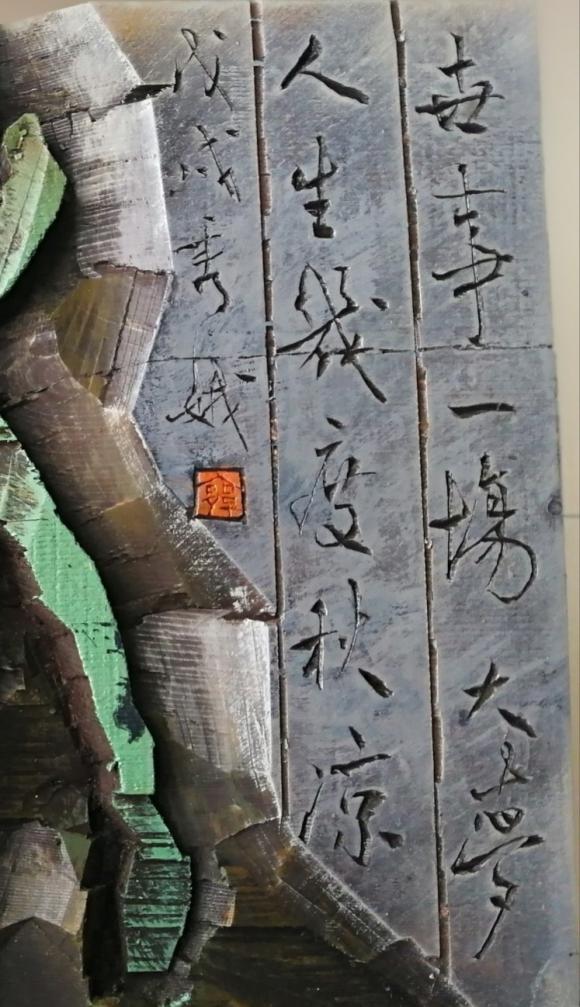 世事一場大夢
人生幾度秋涼
戊戌秀娥